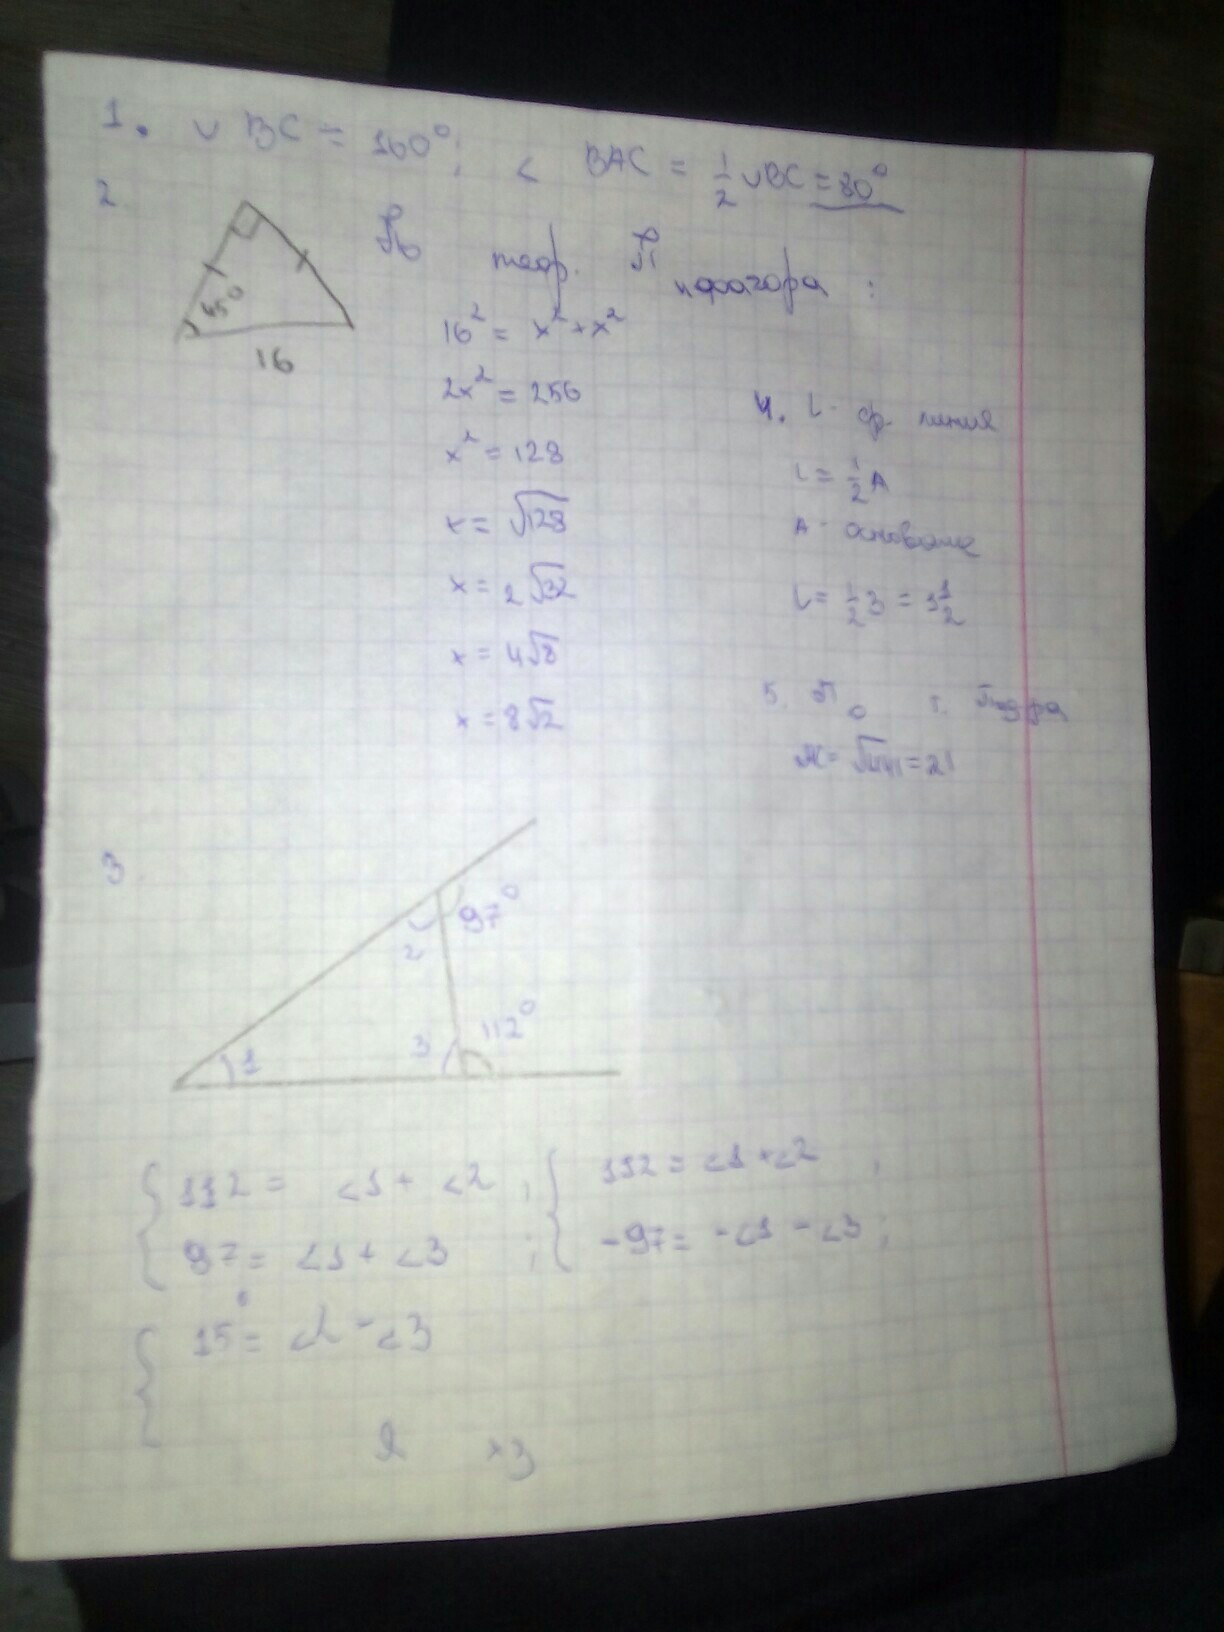 1. ∪ BC = 160°; < BAC = 1/2 ∪BC = 80°
2
45°
16
По теор. Пифагора :
16² = x² + x²
2x² = 256
x² = 128
x = √128
x = 2√32
x = 4√8
x = 8√2
4. L - ср. линия
L = 1/2 A
A - основание
L = 1/2 3 = 1 1/2
5. По т.
= √441 = 21
3.
97°
2
112°
3
1
{ 112 = <1 + <2 ; { 112 = <1 + <2 ;
97 = <1 + <3 ; -97 = -<1 - <3 ;
{ 15° = <2 - <3
Я хз